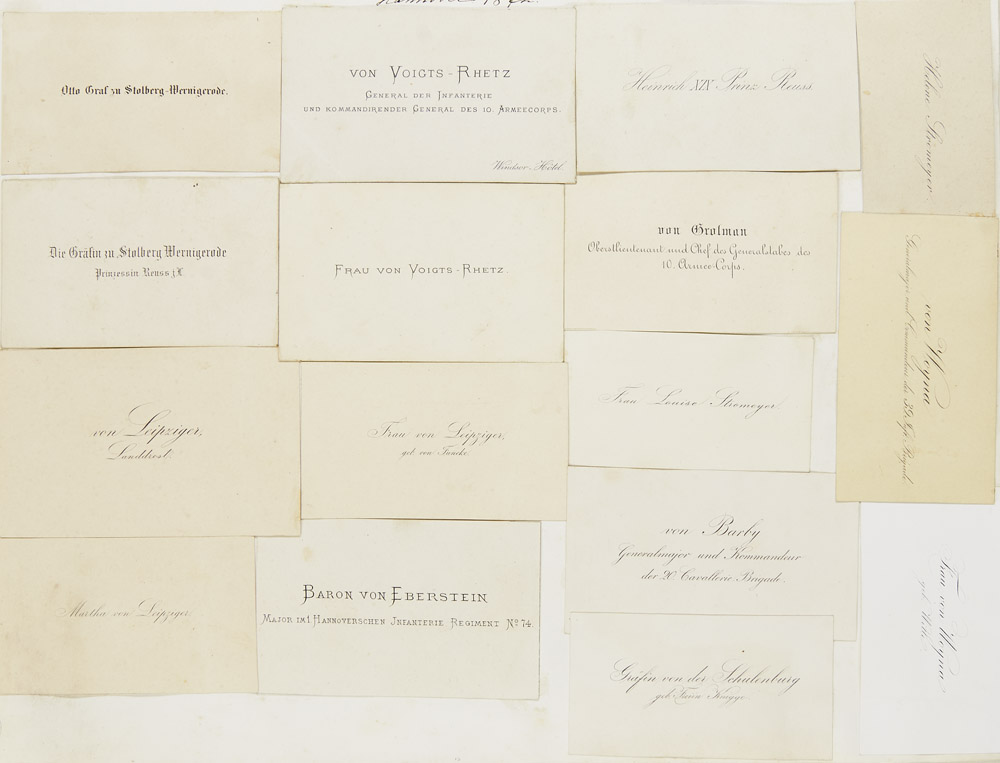 Otto Graf zu Stolberg-Wernigerode.
VON VOIGTS-RHETZ
GENERAL DER INFANTERIE
UND KOMMANDIRENDER GENERAL DES 10. ARMEECORPS.
Windsor Hôtel.
Heinrich XIV Prinz Reuss
Helene Stromeyer.
Die Gräfin zu Stolberg Wernigerode
Prinzessin Reuss j.L.
FRAU VON VOIGTS-RHETZ.
von Grolman
Oberstlieutenant und Chef des Generalstabes des
10. Armee-Corps.
von Woyna
Generalmajor und Commandeur der 39. Infr. Brigade.
von Leipziger,
Landdrost.
Frau von Leipziger,
geb. von Funcke.
Frau Louise Stromeyer
Martha von Leipziger.
BARON VON EBERSTEIN
MAJOR IM 1 HANNOVERSCHEN INFANTERIE REGIMENT No 74.
von Barby
Generalmajor und Kommandeur
der 20. Cavallerie-Brigade.
Gräfin von der Schulenburg
geb. Knigge.
Frau von Woyna
geb.